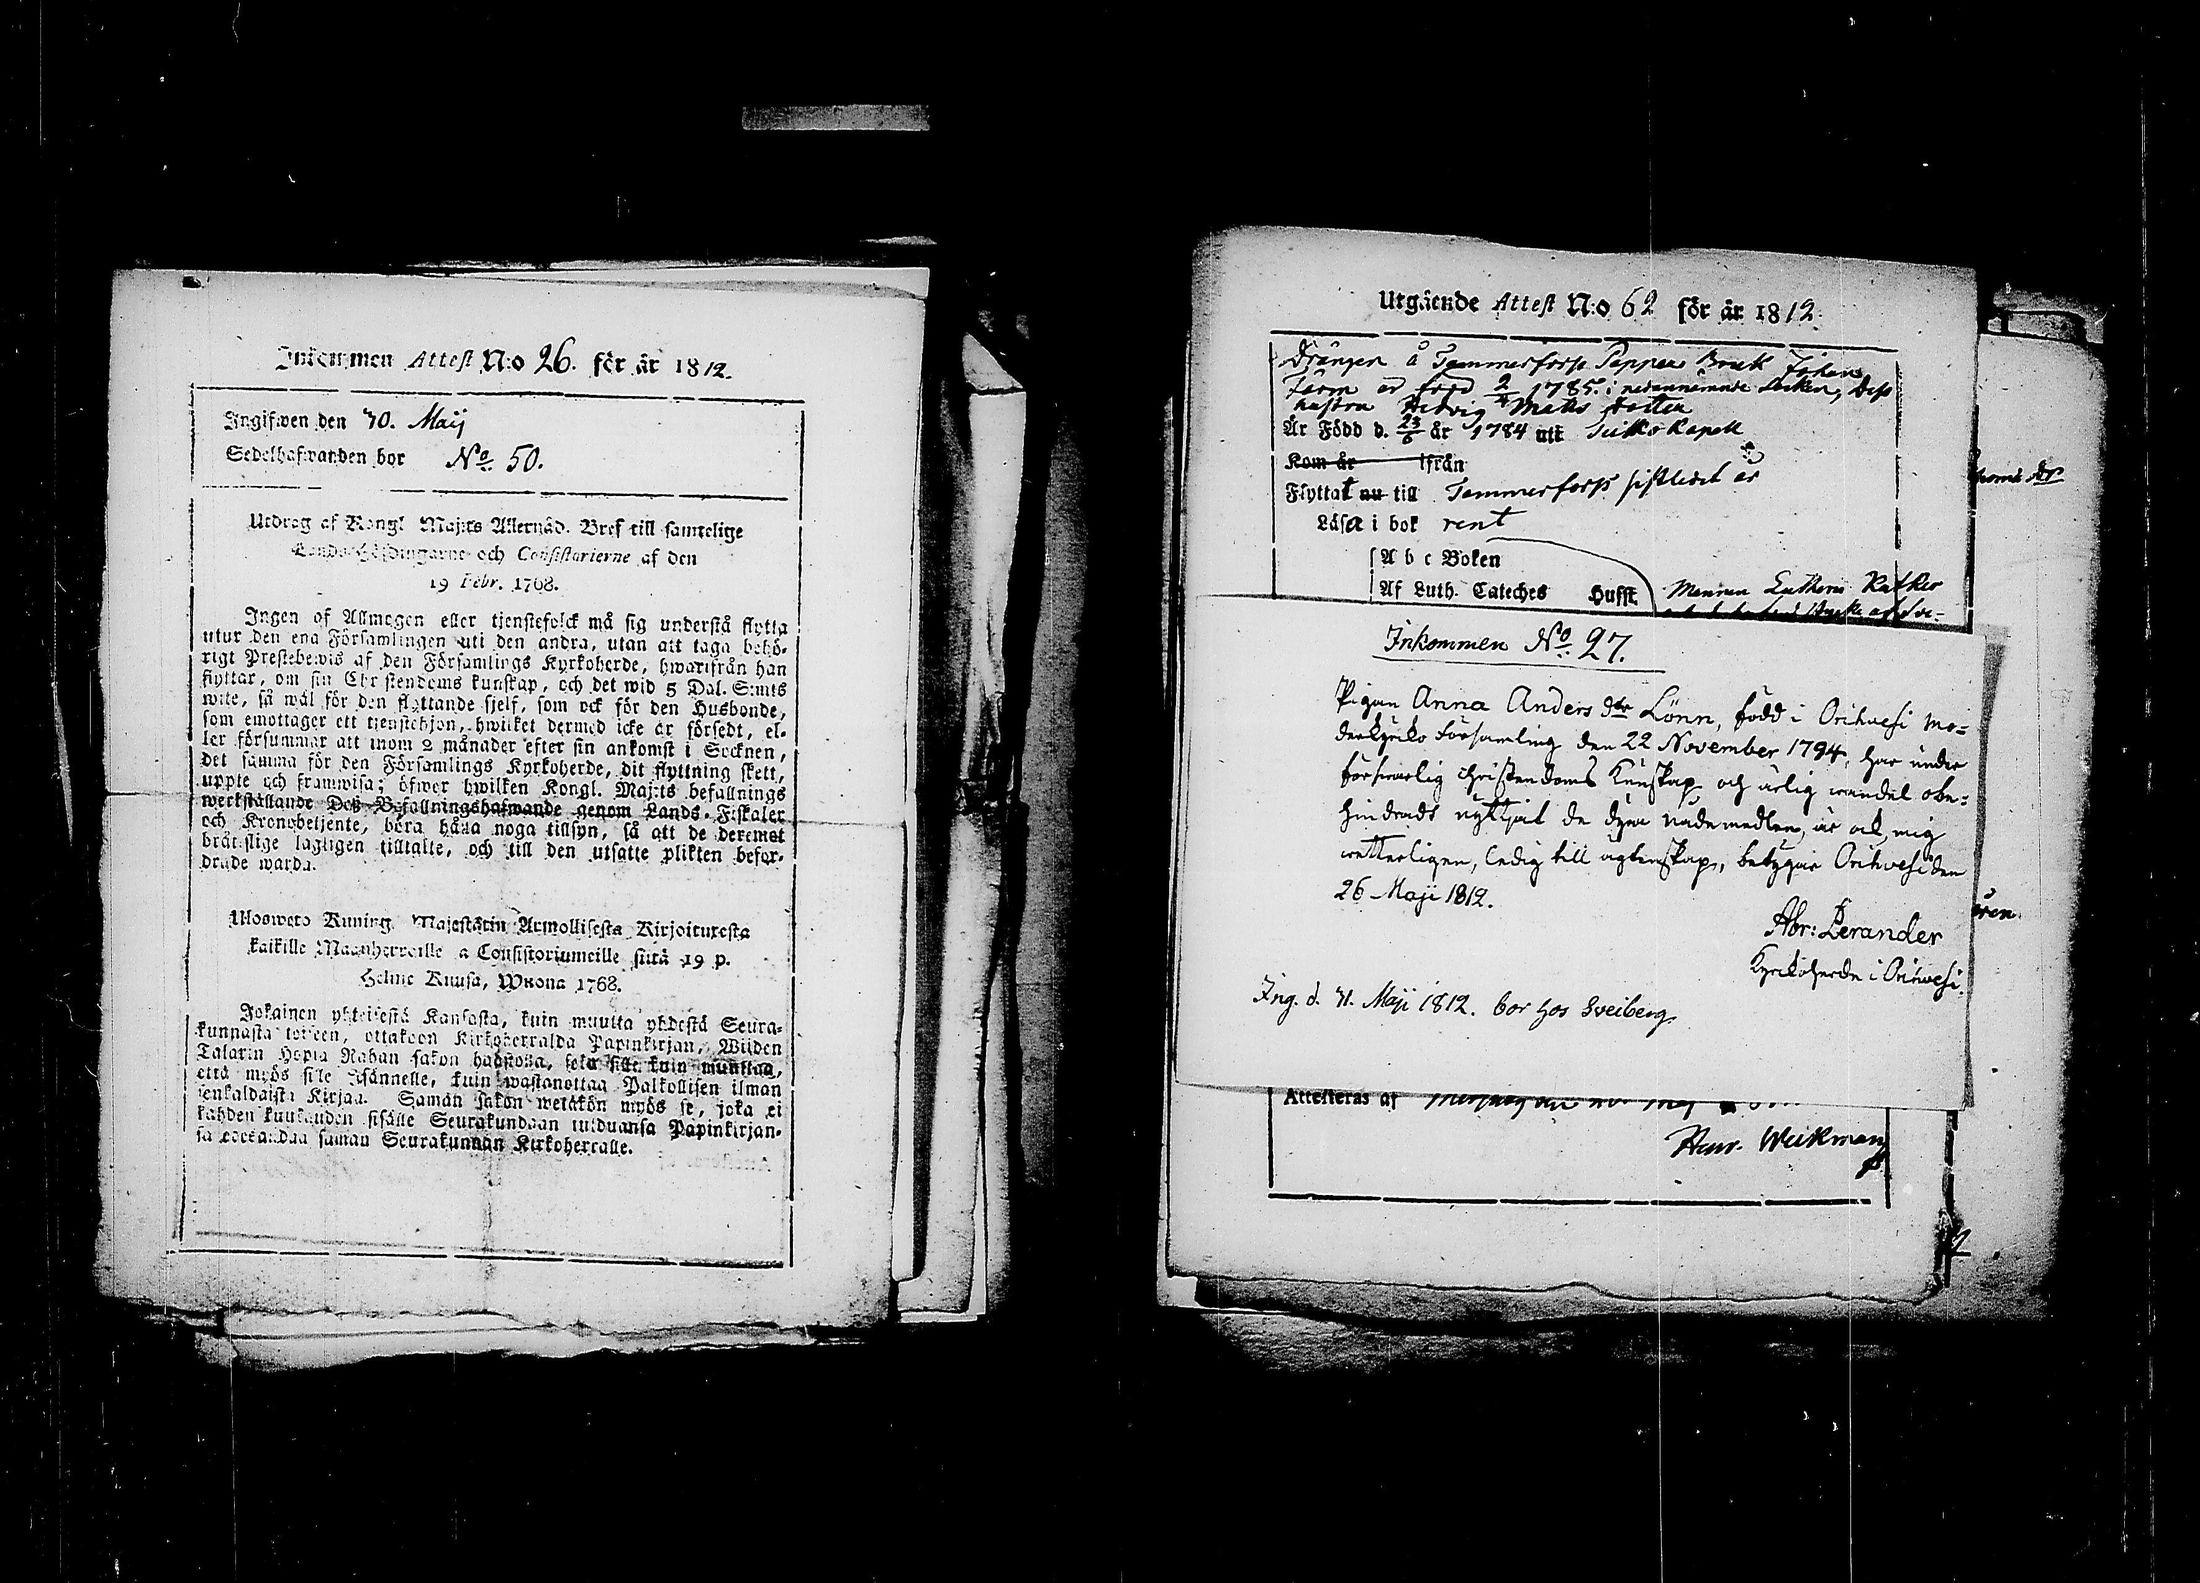 Inkommen Attest N:o 26. för år 1812.
Ingifwen den 30. Maij
Sedelhafwanden bor No 50.
Utdrag af Kongl Maj:ts Allernåd. Bref till samtelige
Lands-Höfdingarne och Consistorierne af den
19 Febr. 1768.
Ingen af Allmogen eller tjenstefolck må sig understå flytta
utur den ena Församlingen uti den andra, utan att taga behö-
rigt Prestebewis af den Församlings Kyrkoherde, hwarifrån han
flyttar, om sin Christendoms kunskap, och det wid 5 Dal. S:mts
wite, så wäl för den flyttande sjelf, som ock för den Husbonde,
som emottager ett tjenstehjon, hwilket dermed icke är försedt, el-
ler försummar att inom 2 månader efter sin ankomst i Socknen,
det samma för den Församlings Kyrkoherde, dit flyttning skett,
uppte och framwisa; öfwer hwilken Kongl. Maj:ts befallnings
werkställande Deß Befallningshafwande genom Lands-Fiskaler
och Kronobetjente, böra hålla noga tillsyn, så att de deremot
brätslige lagligen tilltalte, och till den utsatte plikten befor-
drade warda.
Ulosweto Kuning. Majestätin Armollisesta Kirjoituxesta
kaikille Maanherroille ja Consistoriumeille siitä 19 p.
Helme Kuusa, Wuona 1768.
Jokainen yhteisestä Kansasta, kuin muutta yhdestä Seura-
kunnasta toiseen, ottakoon Kirkoherralda Papinkirjan, Wiiden
Talarin Hopia Rahan sakon haastolla, seka sille kuin muuttaa,
että myös sille Isännelle, kuin wastanottaa Palkollisen ilman
senkaldaista Kirjaa. Saman sakon wetäkön myös se, joka ei
kahden kuukauden sisälle Seurakundaan tulduansa Papinkirjan-
sa edesandaa saman Seurakunnan Kirkoherralle.
Utgående Attest N:o 62 för år 1812.
Drängen å Tammerfors Papper Bruk Johan
är född 1785 i nedannämnde Socken, dess
hustru Hedvig Matts dotter
Är Född d. 23/6 år 1784 uti Kapell
Kom år ifrån
Flyttat nu till Tammerfors sistledet år
Läsa i bok rent
A b c Boken
Af Luth. Cateches Hufst.
Mannen Lutheri
Inkommen No 27.
Pigan Anna Anders dtr Lönn, född i Orihvesi Mo-
derkyrko Församling den 22 November 1794, har under
försvarlig christendoms Kunskap och ärlig wandel obe-
hindradt nyttjat de dyra nådemedlen, är ock, mig
wetterligen, ledig till ägtenskap, betygar Orihvesi den
26 Maji 1812.
Abr: Perander
Kyrkoherde i Orihvesi.
Ing. d. 31. Maji 1812. bor hos Sveiberg.
Attesteras af
Henr. Weckman